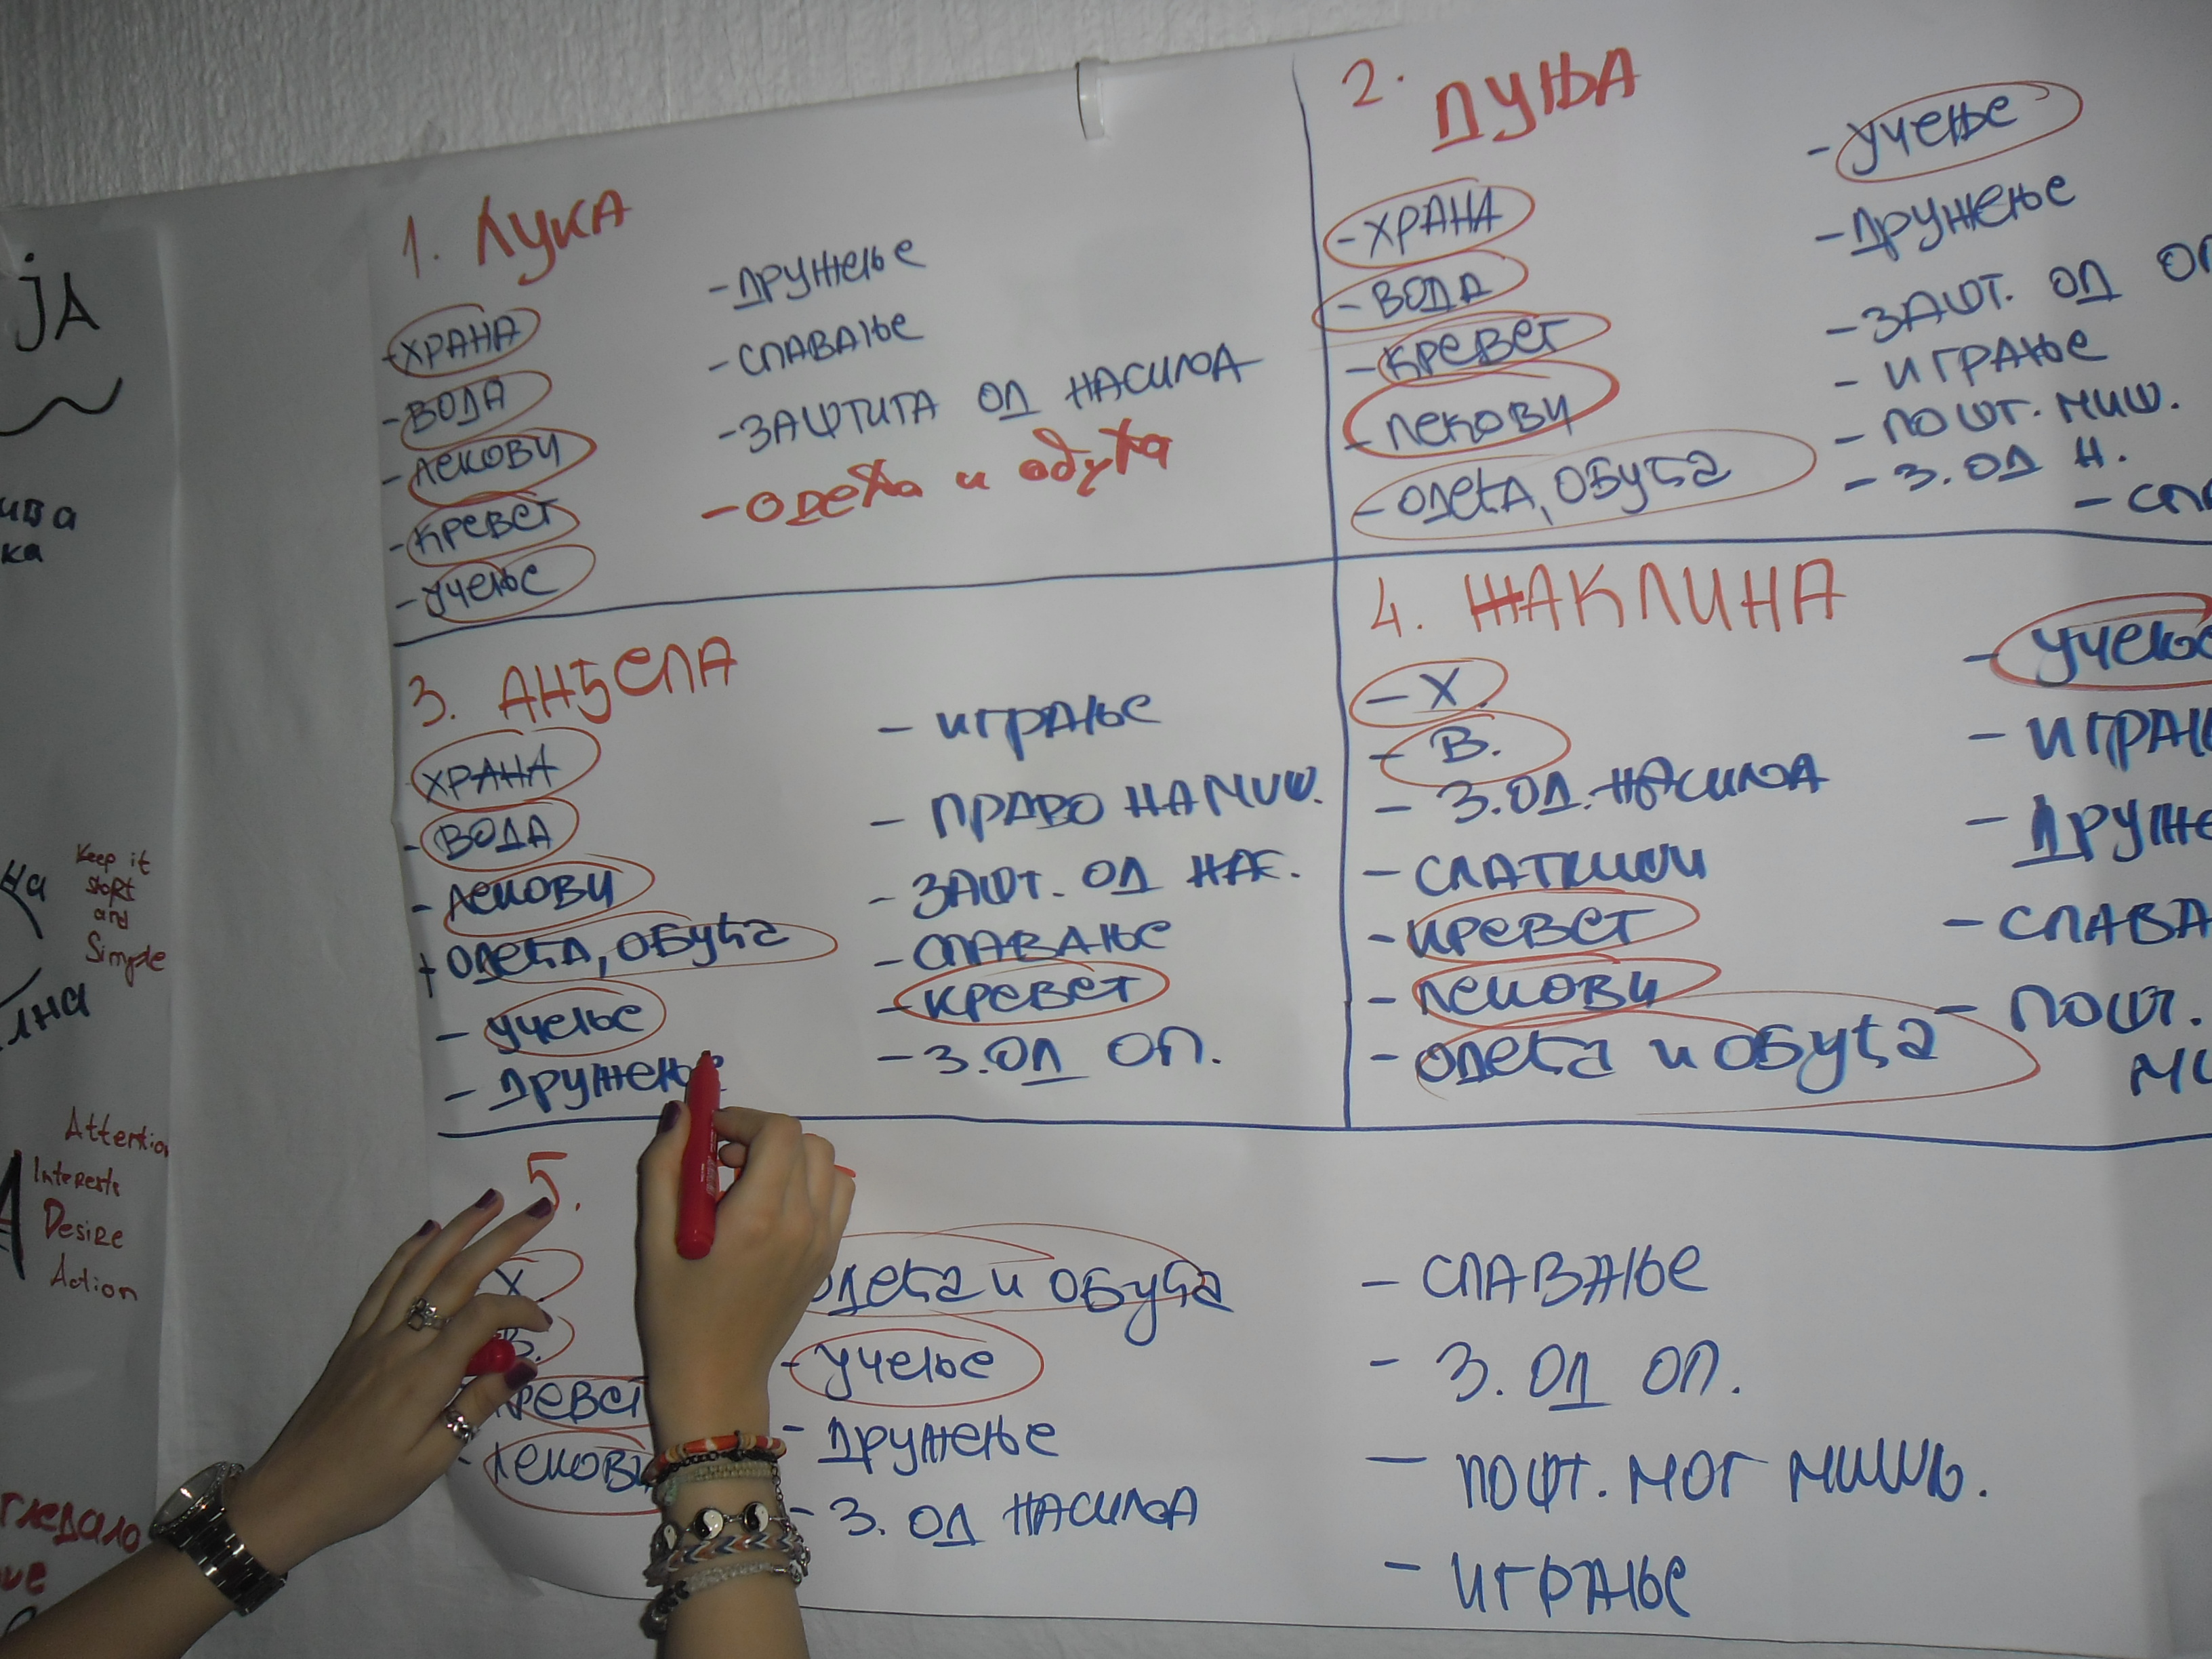 јА
ива
ка
на
Keep it
start
and
Simple
Attention
Interests
Desire
Action
огледало
1. ЛУКА
-ХРАНА
-ВОДА
-ЛЕКОВИ
-КРЕВЕТ
-УЧЕЊЕ
-ДРУЖЕЊЕ
-СПАВАЊЕ
-ЗАШТИТА ОД НАСИЉА
-Одећа и обућа
2. ДУЊА
-ХРАНА
-ВОДА
-КРЕВЕТ
-ЛЕКОВИ
-ОДЕЋА, ОБУЋА
-УЧЕЊЕ
-ДРУЖЕЊЕ
-ЗАШТ. ОД ОП
-ИГРАЊЕ
-ПОШТ. МИШ.
-З. ОД Н.
-СПА
3. АНЂЕЛА
ХРАНА
-ВОДА
-ЛЕКОВИ
+ОДЕЋА, ОБУЋА
-УЧЕЊЕ
-ДРУЖЕЊЕ
-ИГРАЊЕ
-ПРАВО НА МИШ.
-ЗАШТ. ОД НАС.
-СПАВАЊЕ
-КРЕВЕТ
-З. ОД ОП.
4. ЖАКЛИНА
-Х.
-В.
-З. ОД. НАСИЉА
-СЛАТКИШИ
-КРЕВЕТ
-ЛЕКОВИ
-ОДЕЋА И ОБУЋА
-УЧЕЊЕ
-ИГРАЊ
-ДРУЖЕ
-СПАВА
-ПОШТ.
МИ
5.
Х.
В.
КРЕВЕТ
-ЛЕКОВИ
ОДЕЋА И ОБУЋА
-УЧЕЊЕ
-ДРУЖЕЊЕ
-З. ОД НАСИЉА
-СПАВАЊЕ
-З. ОД ОП.
-ПОШТ. МОГ МИШЉ.
-ИГРАЊЕ